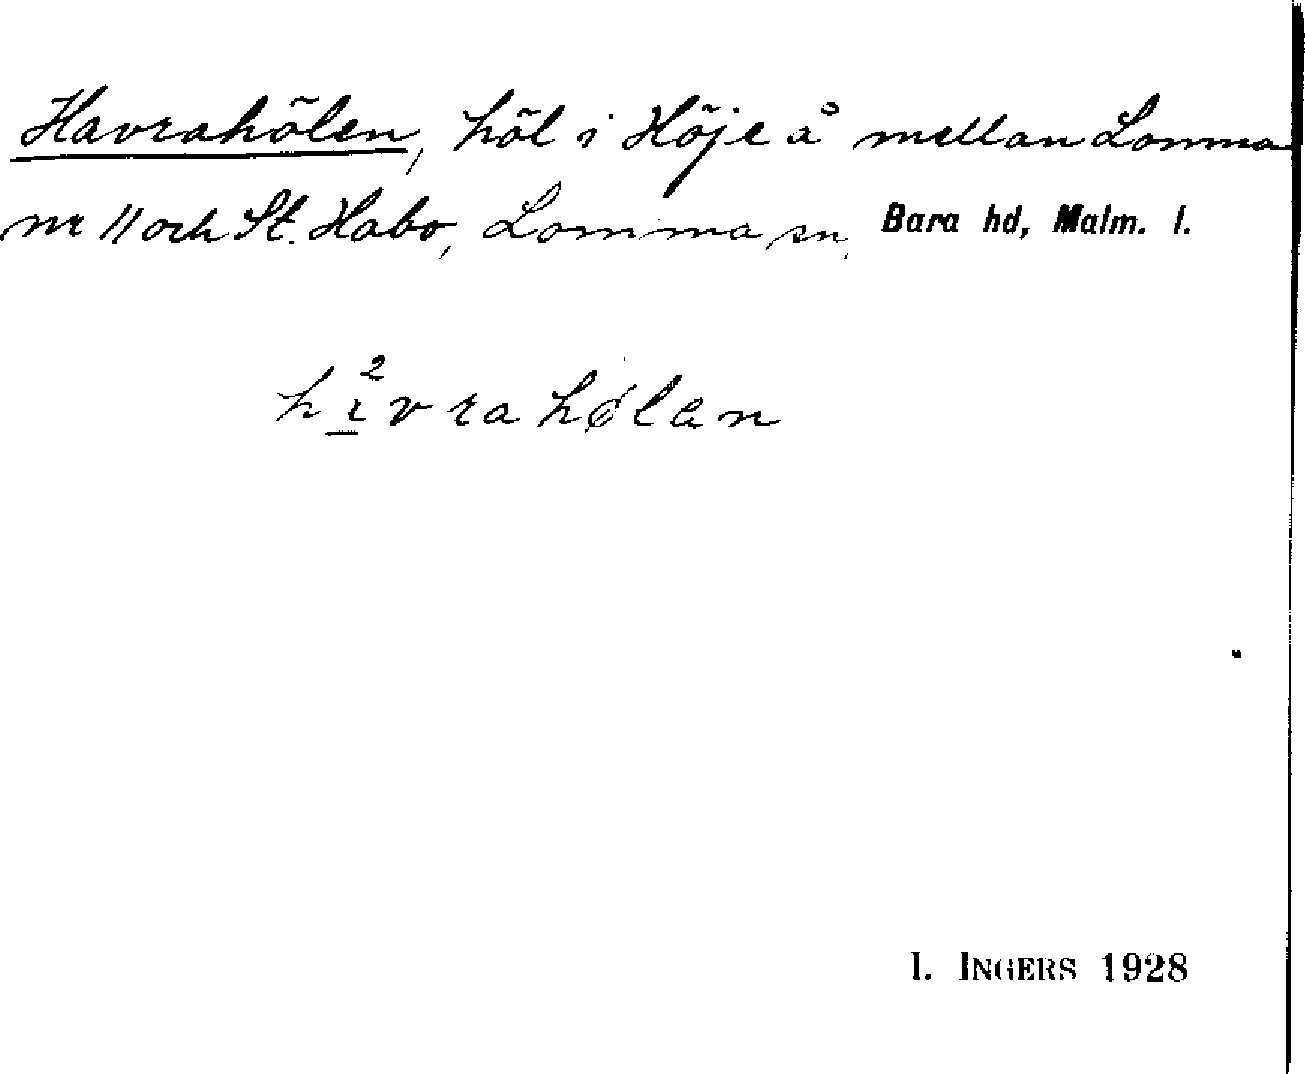 Havrahölen, höl i Höje å mellan Lomma
nr 11 och St. Habo, Lomma sn, Bara hd, Malm. l.
I. INGERS 1928